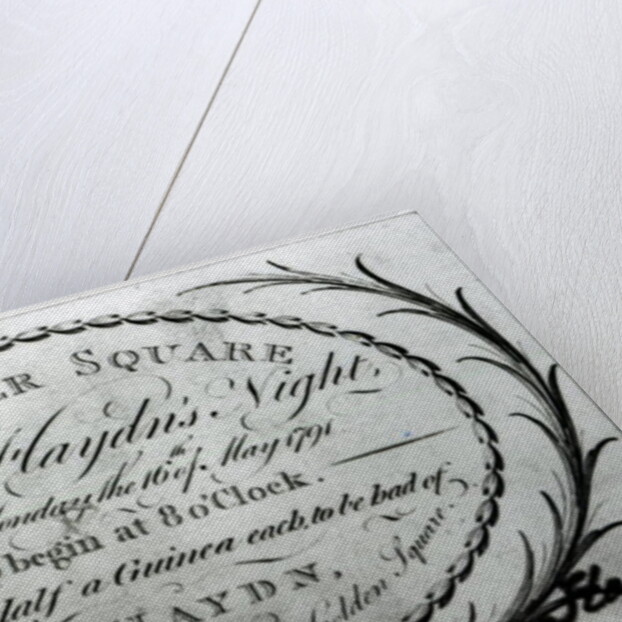 ER SQUARE
Haydn's Night,
onday the 16th of May 1791
begin at 8 o'Clock.
Half a Guinea each, to be had of
HAYDN,
Golden Square.